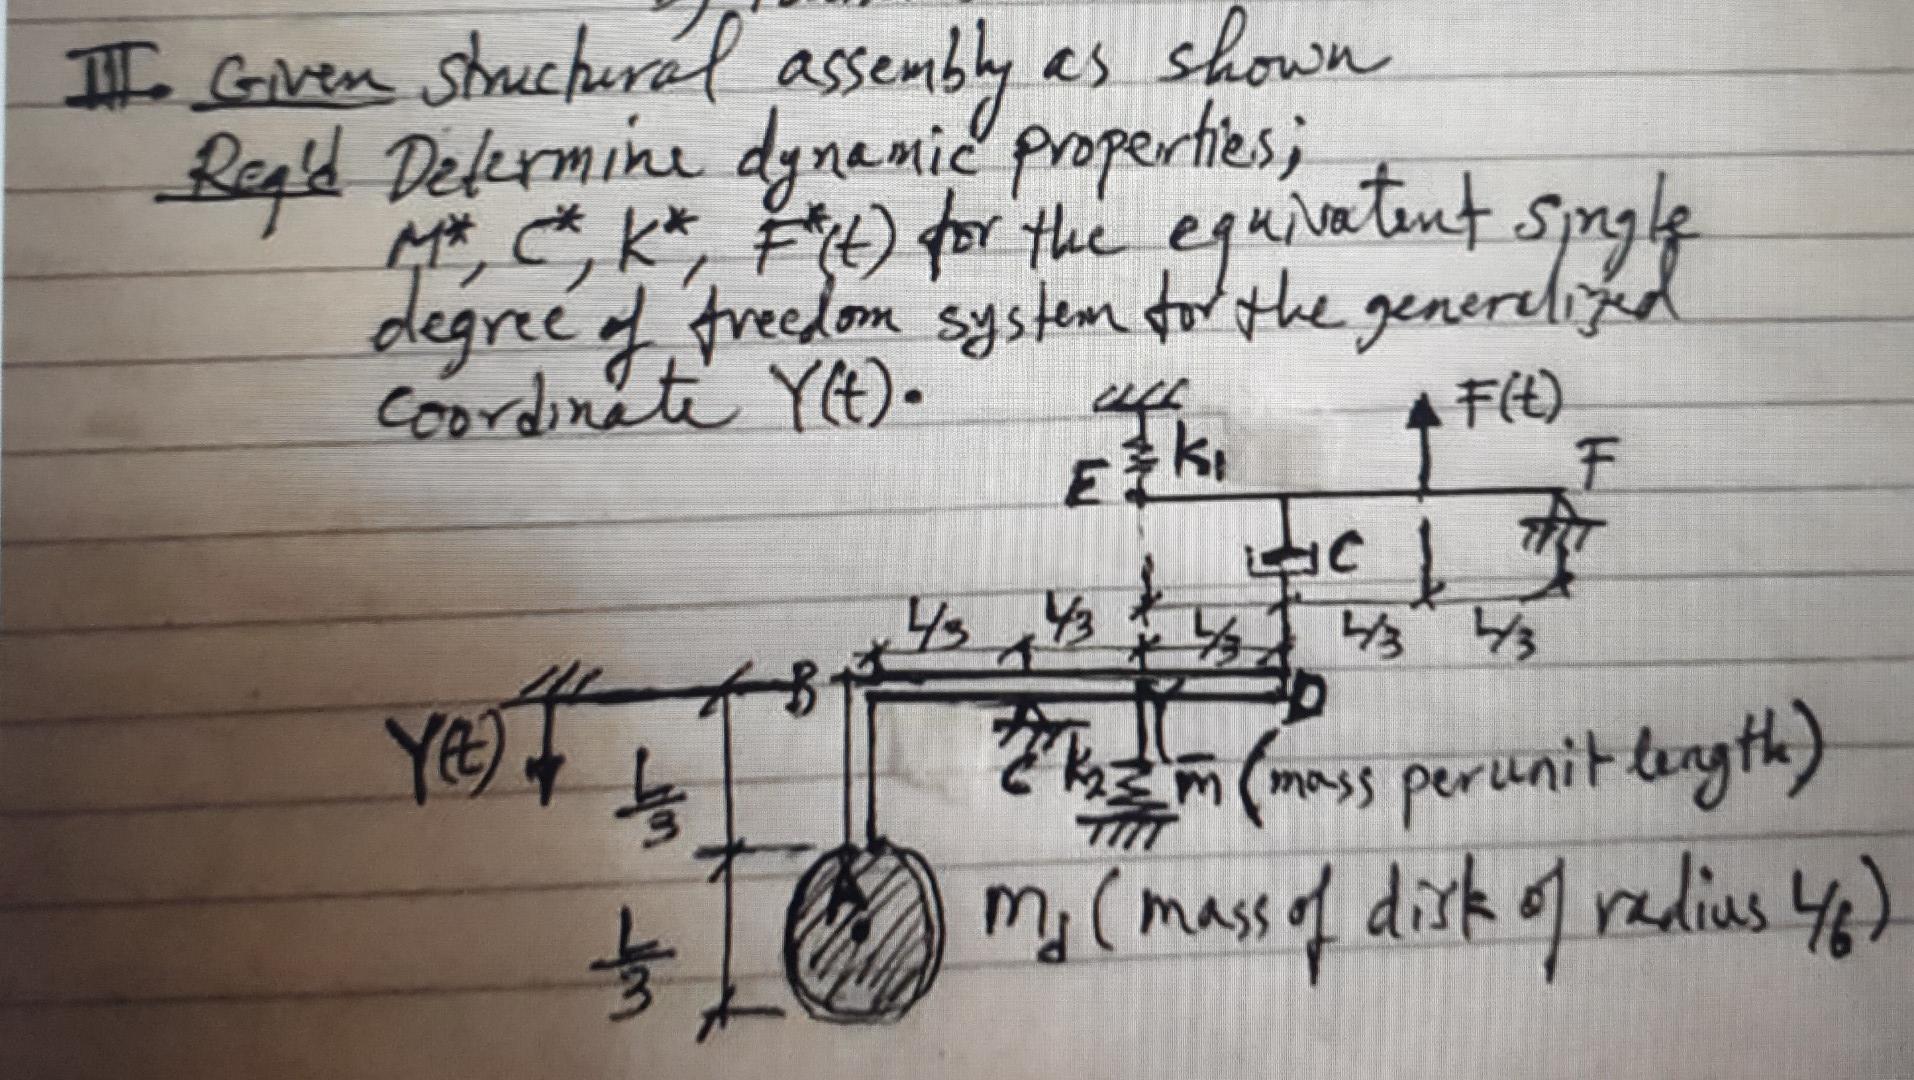 III. Given structural assembly as shown
Req'd Determine dynamic properties;
M*, C*, K*, F*(t) for the equivatent single
degree of freedom system for the generalized
coordinate Y(t).
F(t)
E K1 F
C
L/3 L/3 L/3 L/3 L/3
B D
Y(t) L/3 C k2 m̅ (mass per unit length)
A
L/3 md (mass of disk of radius L/6)